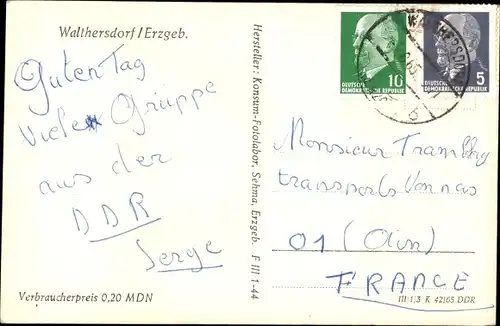 Walthersdorf/Erzgeb.
Guten Tag
Viele Grüppe
aus der
DDR
Serge
Verbraucherpreis 0,20 MDN
Hersteller: Konsum-Fotolabor, Sehma, Erzgeb. F III 1-44
10
DEUTSCHE
DEMOKRATISCHE REPUBLIK
5
DEUTSCHE
DEMOKRATISCHE REPUBLIK
Monsieur
transports Vonnas
01 (Ain)
FRANCE
III/1/3 K 42/65 DDR